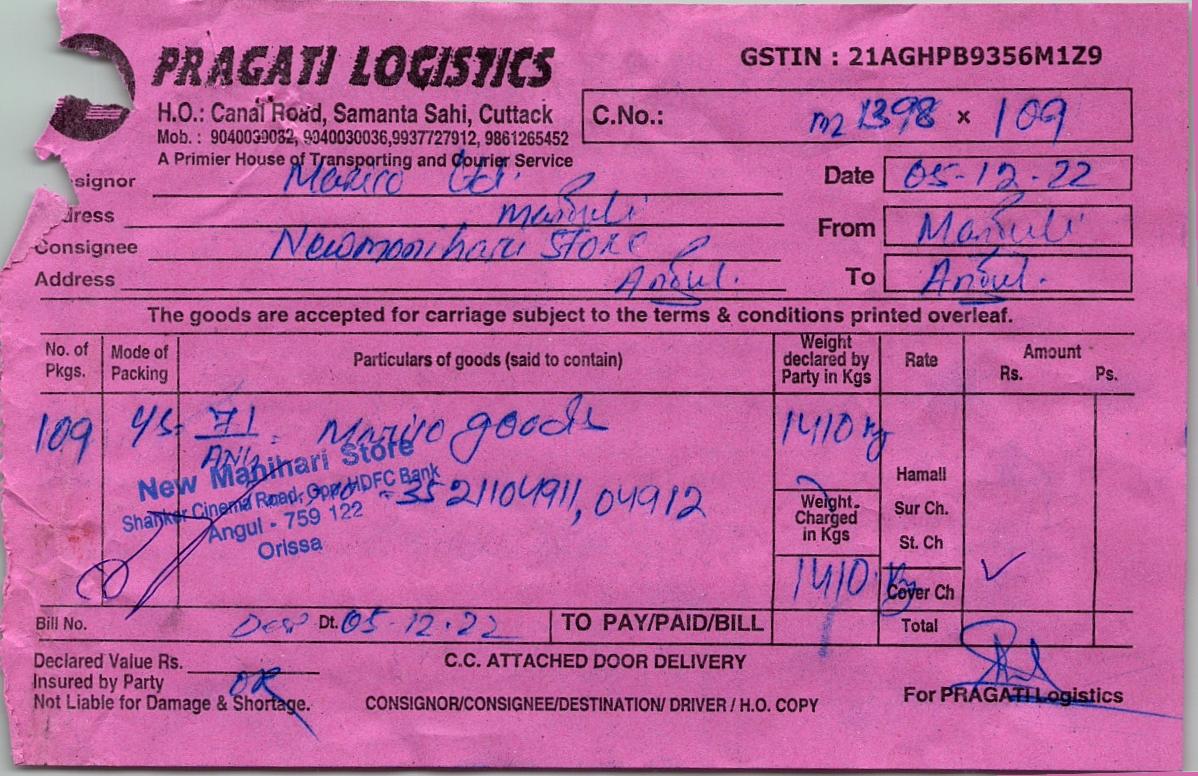 PRAGATI LOGISTICS
GSTIN : 21AGHPB9356M1Z9
H.O.: Canal Road, Samanta Sahi, Cuttack
Mob. : 9040030032, 9040030036,9937727912, 9861265452
A Primier House of Transporting and Courier Service
C.No.: 1398 x 109
signor Marico Ltd.
Date 05-12-22
dress Manguli
From Manguli
Consignee Newmanihari Store
Address Angul.
To Angul.
The goods are accepted for carriage subject to the terms & conditions printed overleaf.
No. of Pkgs. Mode of Packing Particulars of goods (said to contain) Weight declared by Party in Kgs Rate Amount Rs. Ps.
109 Marico goods 1410 kg
New Manihari Store
Shanker Cinema Road, Opp. HDFC Bank
Angul - 759 122
Orissa
3521104911, 04912
Hamali
Weight Charged in Kgs
Sur Ch.
St. Ch
1410 Kg
Cover Ch
Bill No. Dt. 05-12-22 TO PAY/PAID/BILL Total
Declared Value Rs.
C.C. ATTACHED DOOR DELIVERY
Insured by Party OR
Not Liable for Damage & Shortage.
CONSIGNOR/CONSIGNEE/DESTINATION/ DRIVER / H.O. COPY
For PRAGATI Logistics